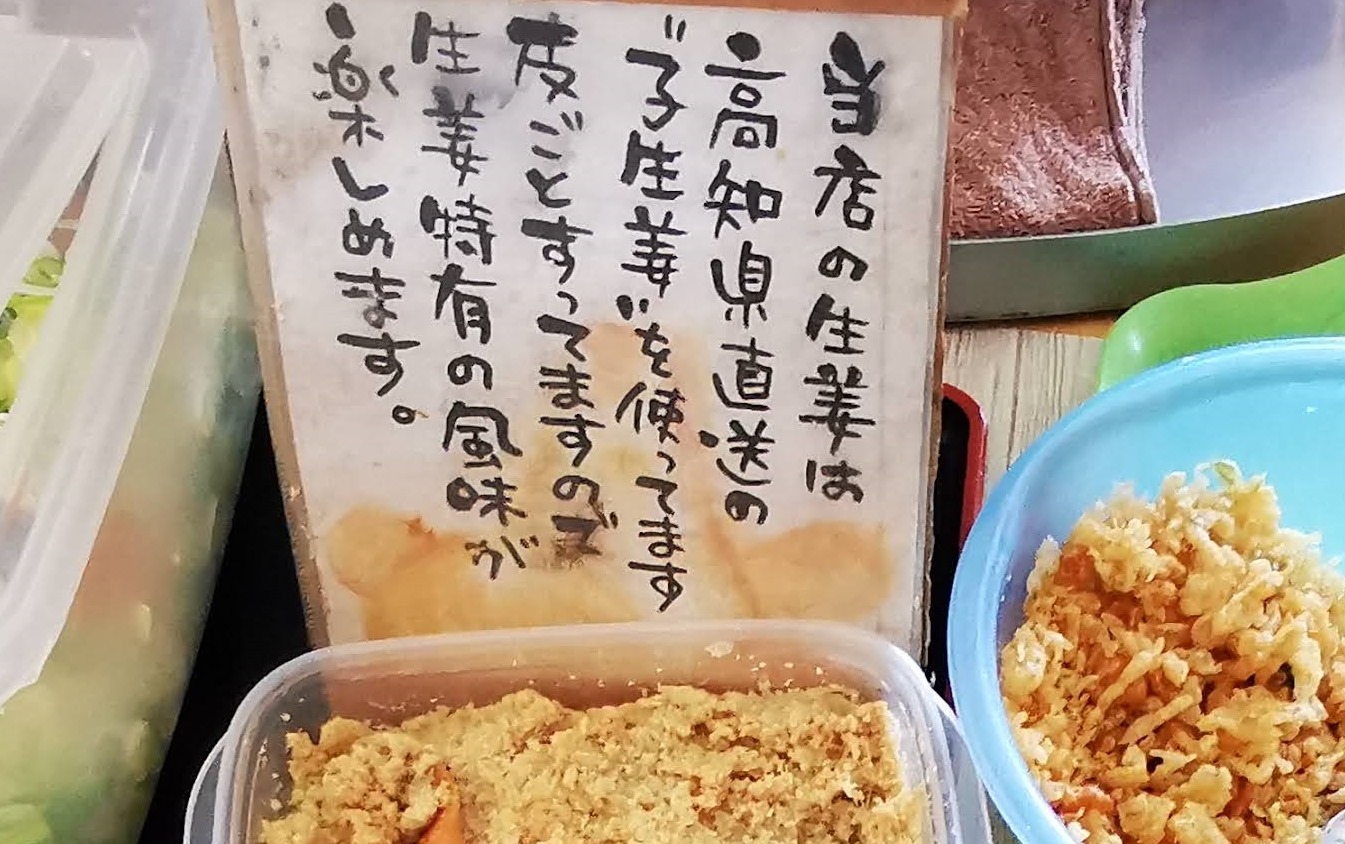 当店の生姜は
高知県直送の
"子生姜"を使ってます
皮ごとすってますので
生姜特有の風味が
楽しめます。